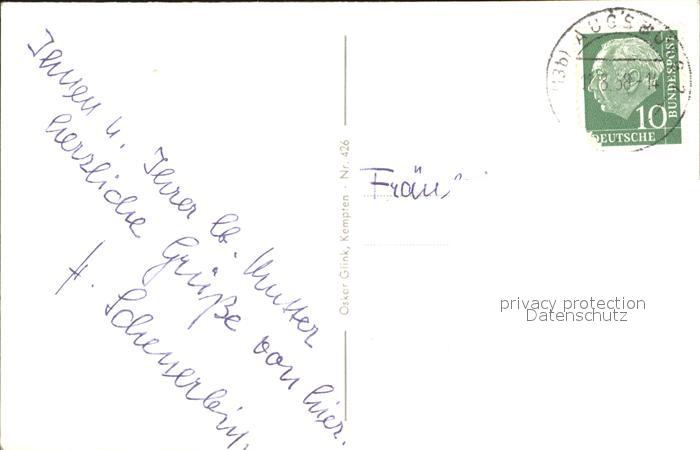 Ihnen u. Ihrer lb. Mutter
herzliche Grüße von hier.
H.
Oskar Glink, Kempten · Nr. 426
(13b) AUGSBURG 2
DEUTSCHE
BUNDESPOST
10
privacy protection
Datenschutz